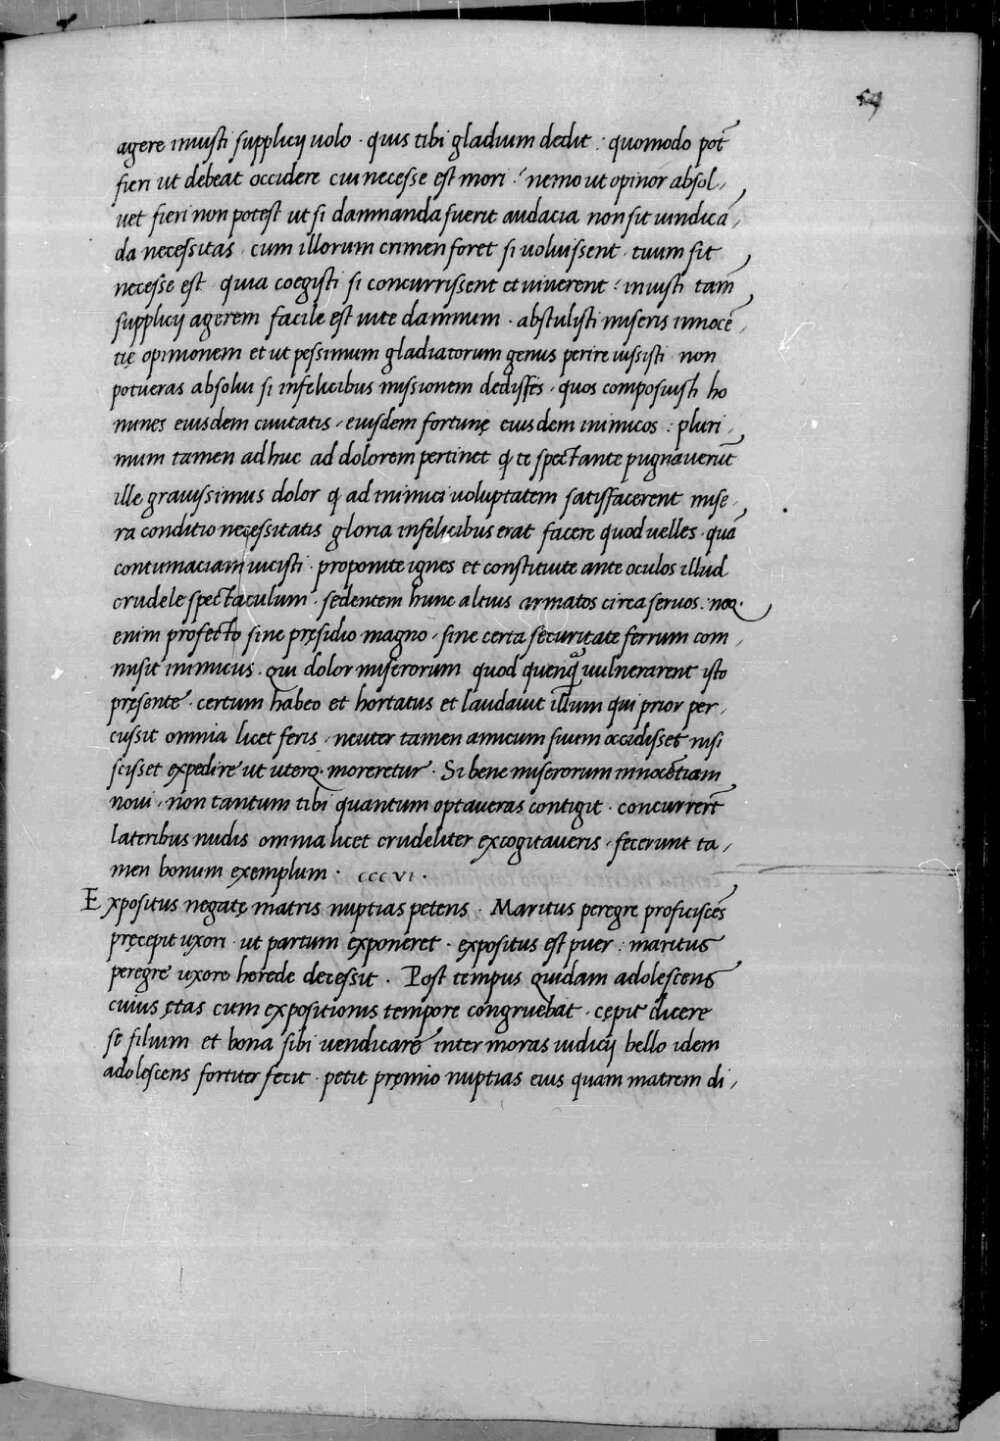 59
agere iniusti supplicij uolo · quis tibi gladium dedit : quomodo pot̄
fieri ut debeat occidere cui necesse est mori ? nemo ut opinor absol,
uet fieri non potest ut si damnanda fuerit audacia non sit uindicā,
da necessitas · cum illorum crimen foret si voluissent · tuum sit
necesse est · quia coegisti si concurrissent et viverent : iniusti tam̄
supplicij agerem facile est vite damnum · abstulisti miseris innocē,
tię opinionem et ut pessimum gladiatorum genus perire iussisti non
potueras absolui si infelicibus missionem dedisses · quos composuisti ho
mines eiusdem ciuitatis , eiusdem fortunę eiusdem inimicos : pluri,
mum tamen ad huc ad dolorem pertinet q̄ te spectante pugnauerūt
ille grauissimus dolor q̄ ad inimici uoluptatem satisfacerent mise,
ra conditio necessitatis gloria infelicibus erat facere quod uelles · quā
contumaciam uicisti · proponite ignes et constituite ante oculos illud
crudele spectaculum · sedentem hunc altius armatos circa seruos · neq·
enim profecto sine pręsidio magno , sine certa securitate ferrum com,
misit inimicus · qui dolor miserorum quod quenqᵃ uulnerarent isto
pręsente · certum habeo et hortatus et laudauit illum qui prior per,
cussit omnia licet feris , neuter tamen amicum suum occidisset nisi
scisset expedire ut uterq· moreretur · Si bene miserorum innocētiam
noui , non tantum tibi quantum optaueras contigit · concurrerūt
lateribus nudis omnia licet crudeliter excogitaueris , fecerunt ta,
men bonum exemplum · cccvi ·
Expositus negatę matris nuptias petens · Maritus peregre proficiscēs
pręcepit uxori · ut partum exponeret · expositus est puer : maritus
peregre uxore herede decessit · Post tempus quidam adolescens
cuius ętas cum expositionis tempore congruebat · cępit dicere
se filium et bona sibi uendicare inter moras iudicij bello idem
adolescens fortiter fecit · petit pręmio nuptias eius quam matrem di,